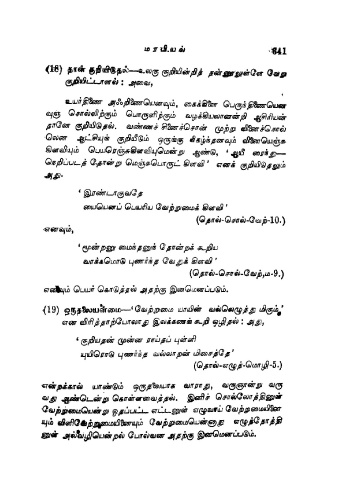 மரபியல் 641
(18) தான் குறியிடுதல்—உலகு குறியின்றித் தன்னூலுள்ளே வேறு
குறியிட்டாளல் : அவை,
உயர்திணை அஃறிணையெனவும், கைக்கிளை பெருந்திணையென
வுஞ் சொல்லிற்கும் பொருளிற்கும் வழக்கியலானன்றி ஆசிரியன்
தானே குறியிடுதல். வண்ணச் சினைச்சொன் முற்று வினைச்சொல்
லென ஆட்சியுங் குறியீடும் ஒருங்கு நிகழ்ந்தனவும் வினையெஞ்சு
கிளவியும் பெயரெஞ்சுகிளவியுமென்று ஆண்டு, ‘ ஆயீ ரைந்து—
நெறிப்படத் தோன்று மெஞ்சுபொருட் கிளவி ’ எனக் குறியிடுதலும்
அது.
‘ இரண்டாகுவதே
யையெனப் பெயரிய வேற்றுமைக் கிளவி ’
(தொல்-சொல்-வேற்-10.)
எனவும்,
‘ மூன்றனு மைந்தனுந் தோன்றக் கூறிய
வாக்கமொடு புணர்ந்த வேதுக் கிளவி ’
(தொல்-சொல்-வேற்,ம-9.)
எனவும் பெயர் கொடுத்தல் அதற்கு இனமெனப்படும்.
(19) ஒருதலையன்மை—‘ வேற்றுமை யாயின் வல்லெழுத்து மிகும் ’
என விரித்தாற்போலாது இலக்கணங் கூறி ஒழிதல் : அது,
‘ குறியதன் முன்ன ராய்தப் புள்ளி
யுயிரொடு புணர்ந்த வல்லாறன் மிசைத்தே ’
(தொல்-எழுத்-மொழி-5.)
என்றக்கால் யாண்டும் ஒருதலையாக வாராது, வருஞான்று வரு
வது ஆண்டென்று கொள்ளவைத்தல். இனிச் சொல்லோத்தினுள்
வேற்றுமையென்று ஓதப்பட்ட எட்டனுள் எழுவாய் வேற்றுமையினை
யும் விளிவேற்றுமையினையும் வேற்றுமையென்னாது எழுத்தோத்தி
னுள் அல்வழியென்றல் போல்வன அதற்கு இனமெனப்படும்.